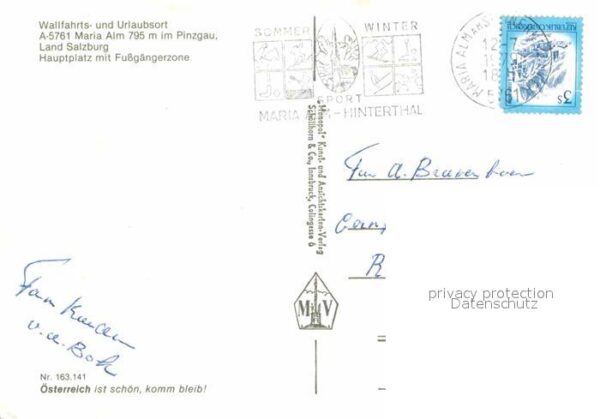 Wallfahrts- und Urlaubsort
A-5761 Maria Alm 795 m im Pinzgau,
Land Salzburg
Hauptplatz mit Fußgängerzone
SOMMER WINTER
SPORT
MARIA ALM-HINTERTHAL
MARIA ALM AM
5761
S3
"Monopol" Kunst- und Ansichtskarten-Verlag
Schöllhorn & Co., Innsbruck, Colingasse 6
Fam A.
R
privacy protection
Datenschutz
M V
Fam
v. d. Bok
Nr. 163.141
Österreich ist schön, komm bleib!